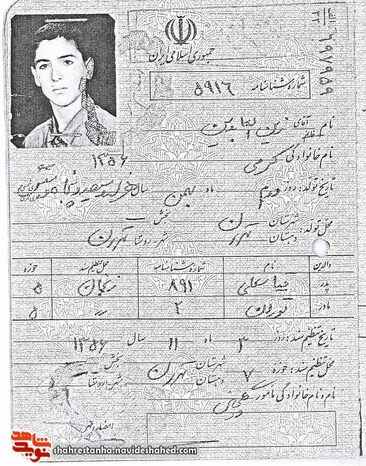 جمهوری اسلامی ایران
۶۹۷۹۵۹
شماره شناسنامه ۵۹۱۶
نام آقای زین العابدین
نام خانوادگی کرمی
۱۳۵۶
تاریخ تولد: روز دوم ماه بهمن سال هزار و سیصد و پنجاه و شش
محل تولد: شهرستان تهران بخش
دهستان شهر-روستا تهران
والدین نام شماره شناسنامه محل تنظیم سند حوزه
پدر ۸۹۱ زنجان ۵
مادر ۲ ۵
تاریخ تنظیم سند: روز ۳ ماه ۱۱ سال ۱۳۵۶
حوزه ۷ شهرستان تهران بخش
محل تنظیم سند: دهستان شهر-روستا
نام و نام خانوادگی مامور
نوید شاهد
shahrestanha.navideshahed.com